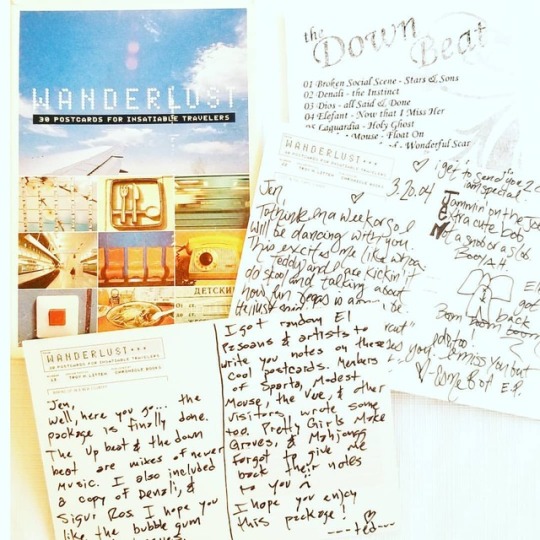 WANDERLUST
30 POSTCARDS FOR INSATIABLE TRAVELERS
the
Down
Beat
01 Broken Social Scene - Stars & Sons
02 Denali - the Instinct
03 Dios - all Said & Done
04 Elefant - Now that I Miss Her
Laguardia - Holy Ghost
Mouse - Float On
- Wonderful Scar
WANDERLUST...
30 POSTCARDS FOR INSATIABLE TRAVELERS
CHRONICLE BOOKS
3.20.04
Jen,
To think in a week or so I
will be dancing with you.
This excites me like whoa
Teddy and I are kickin' it
and talking about
how fun
i get to send you 2
Jammin' on the
Extra cute bob
Not a snob or a slob
Booyah.
got
back
Boom boom boom
miss you but
ДЕТСКИЙ
WANDERLUST...
30 POSTCARDS FOR INSATIABLE TRAVELERS
TROY LITTEN
CHRONICLE BOOKS
Jen,
Well, here you go... the
package is finally done.
The up beat & the down
beat are mixes of newer
music. I also included
a copy of Denali, &
Sigur Ros. I hope you
like the bubble gum
I got random El
Pasoans & artists to
write you notes on these
cool postcards. Members
of Sparta, Modest
Mouse, the Vue, & other
visitors wrote some
too. Pretty Girls Make
Graves, & Mahjongg
forgot to give me
back their notes
to you
I hope you enjoy
this package!
---ted---